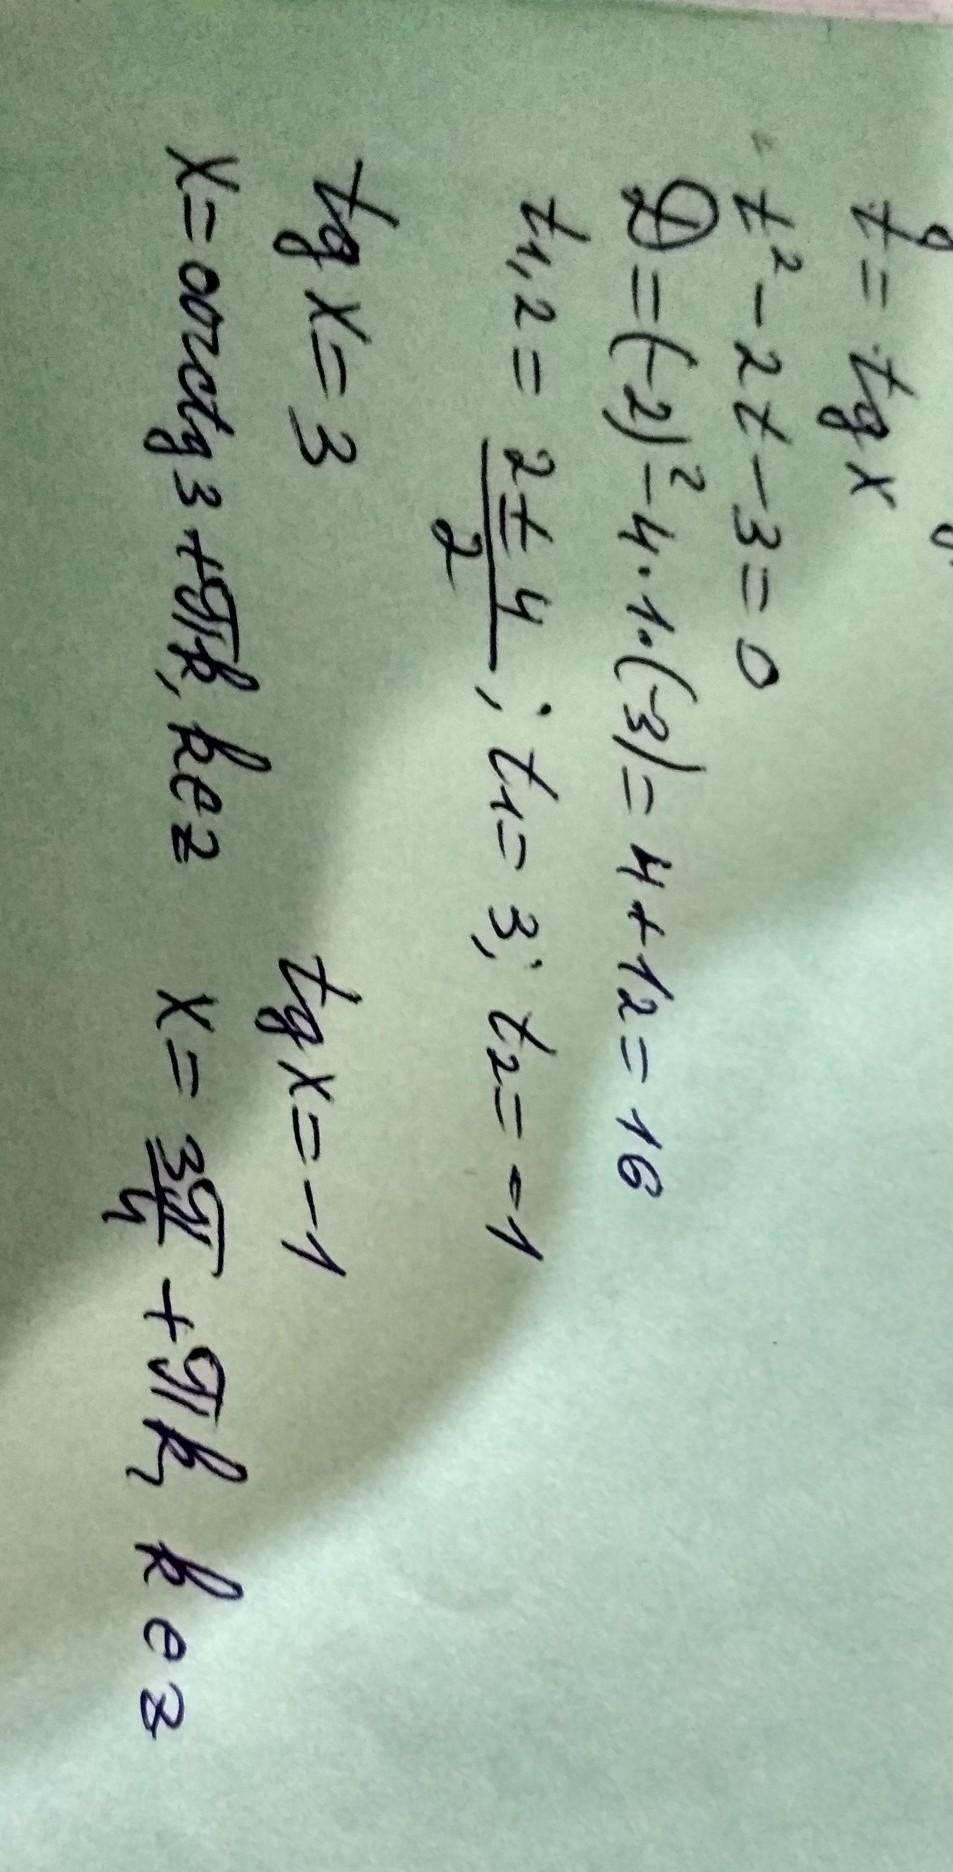 t = tg x
t² - 2t - 3 = 0
D = (-2)² - 4·1·(-3) = 4 + 12 = 16
t1,2 = (2 ± 4)/2 ; t1 = 3; t2 = -1
tg x = 3 tg x = -1
x = arctg 3 + πk, k ∈ z x = 3π/4 + πk, k ∈ z